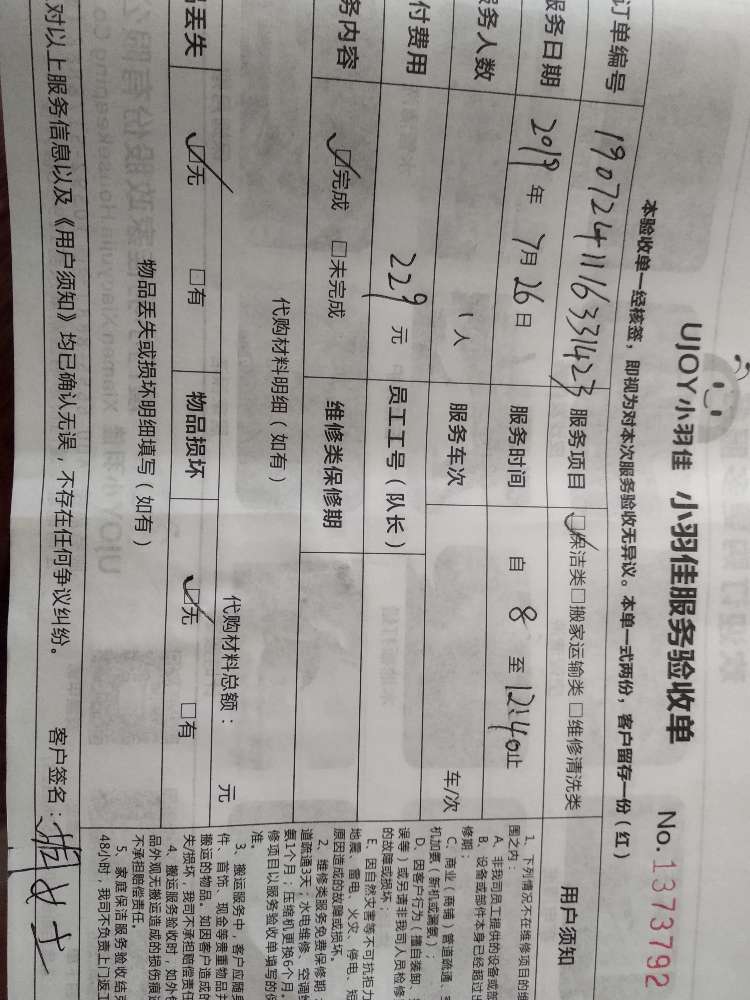 UJOY小羽佳 小羽佳服务验收单 No.1373792
本验收单一经核签，即视为对本次服务验收无异议。本单一式两份，客户留存一份（红）
订单编号 190724111633142 3 服务项目 ☑保洁类□搬家运输类□维修清洗类
服务日期 2019年7月26日 服务时间 自 8 至 12:40止
务人数 1人 服务车次 车/次
付费用 229元 员工工号（队长）
务内容 ☑完成 □未完成 维修类保修期
代购材料明细（如有） 代购材料总额： 元
丢失 ☑无 □有 物品损坏 ☑无 □有
物品丢失或损坏明细填写（如有）
对以上服务信息以及《用户须知》均已确认无误，不存在任何争议纠纷。 客户签名：
用户须知
1、下列情况不在维修项目的维
围之内：
A、非我司员工提供的设备或部
B、设备或部件本身已经超过
修期；
C、商业（商铺）管道疏通、
机加氨（新机或漏氨）；
D、因客户行为（擅自装卸、
误等）或另请非我司人员检修
的故障或损坏；
E、因自然灾害等不可抗拒力
地震、雷电、火灾、停电、短
原因造成的故障或损坏。
2、维修类服务免费保修期：
道疏通3天；水电维修、空调
氨1个月；压缩机更换6个月。
修项目以服务验收单填写的保
准。
3、搬运服务中，客户应随身
件、首饰、现金等贵重物品并
搬运的物品。如因客户造成的
失/损坏，我司不承担赔偿责任
4、搬运服务验收时，如外包
品外观无搬运造成的损伤痕迹
不承担赔偿责任。
5、家庭保洁服务验收结束
48小时，我司不负责上门返工